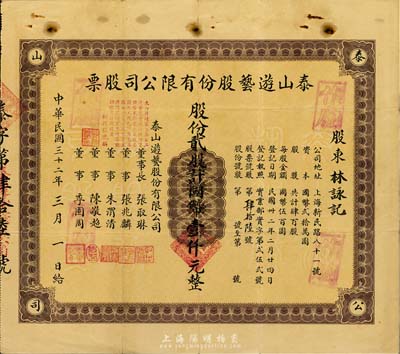 泰山
公司
泰山遊藝股份有限公司股票
股東 林詠記
公司地址 上海新民路八十一號
資本 國幣貳拾萬圓
股數 共計肆百股
每股金額 國幣伍百圓
登記日期 民國卅二年二月廿四日
登記執照 實業部實字第貳伍貳號
股票號數 第肆拾陸號
股份號數 第 號至第 號
股份貳股計國幣壹仟元整
泰山遊藝股份有限公司
董事長 張取琳
董事 張兆麟
董事 朱渭清
董事 陳巖趙
董事 李國周
中華民國三十二年三月一日給
泰字第肆拾陸號
上海陽明拍賣